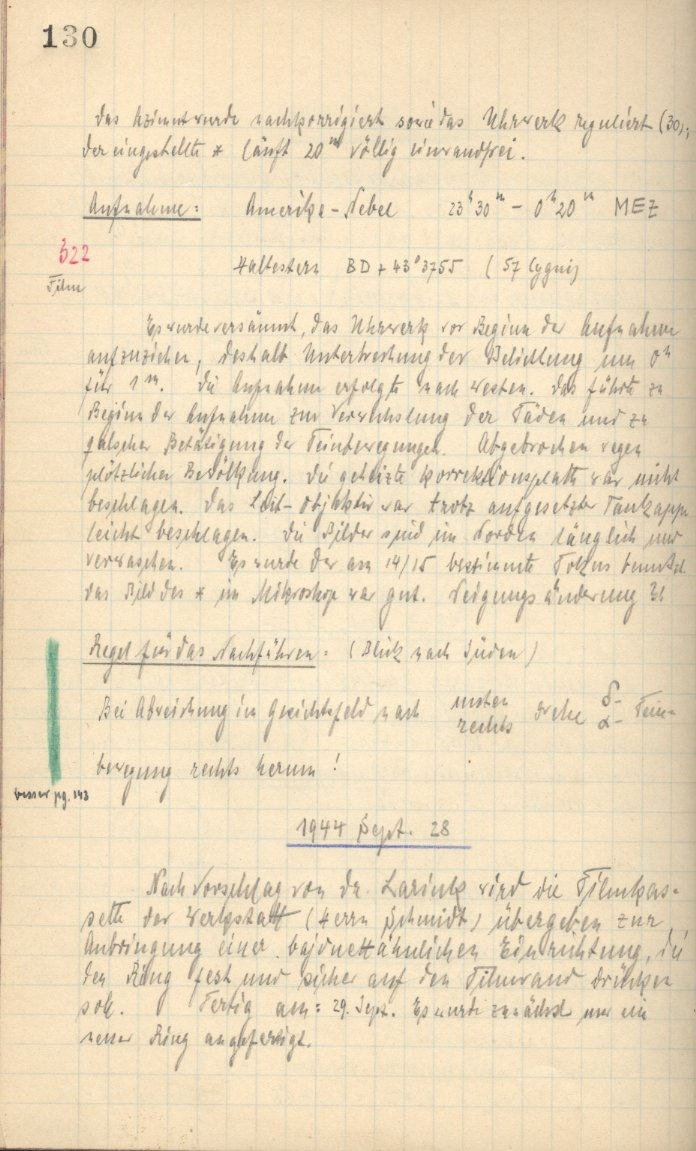 130
Das Azimut wurde nachkorrigiert sowie das Uhrwerk reguliert (30);
der eingestellte * läuft 20ᵐ völlig einwandfrei.
Aufnahme: Amerika-Nebel 23ʰ30ᵐ - 0ʰ20ᵐ MEZ
322
Film
Haltestern BD + 43°3755 (57 Cygni)
Es wurde versäumt, das Uhrwerk vor Beginn der Aufnahme
aufzuziehen, deshalb Unterbrechung der Belichtung um 0ʰ
für 1ᵐ. Die Aufnahme erfolgte nach Westen. Das führte zu
Beginn der Aufnahme zur Verwechslung der Fäden und zu
falscher Betätigung der Feinbewegungen. Abgebrochen wegen
plötzlicher Bewölkung. Die geheizte Korrektionsplatte war nicht
beschlagen. Das Leit-Objektiv war trotz aufgesetzter Taukappe
leicht beschlagen. Die Bilder sind im Norden länglich und
verwaschen. Es wurde der am 14/15 bestimmte Fokus benutzt.
das Bild des * im Mikroskop war gut. Neigungsänderung
Regel für das Nachführen: (Blick nach Süden)
Bei Abweichung im Gesichtsfeld nach unten rechts drehe δ- α- Fein-
bewegung rechts herum!
besser pg. 143
1944 Sept. 28
Nach Vorschlag von Dr. Larink wird die Filmkas-
sette der Werkstatt (Herrn Schmidt) übergeben zur
Anbringung einer bajonettähnlichen Einrichtung, die
den Ring fest und sicher auf den Filmrand drücken
soll. Fertig am: 29. Sept. Es wurde zunächst nur ein
neuer Ring angefertigt.